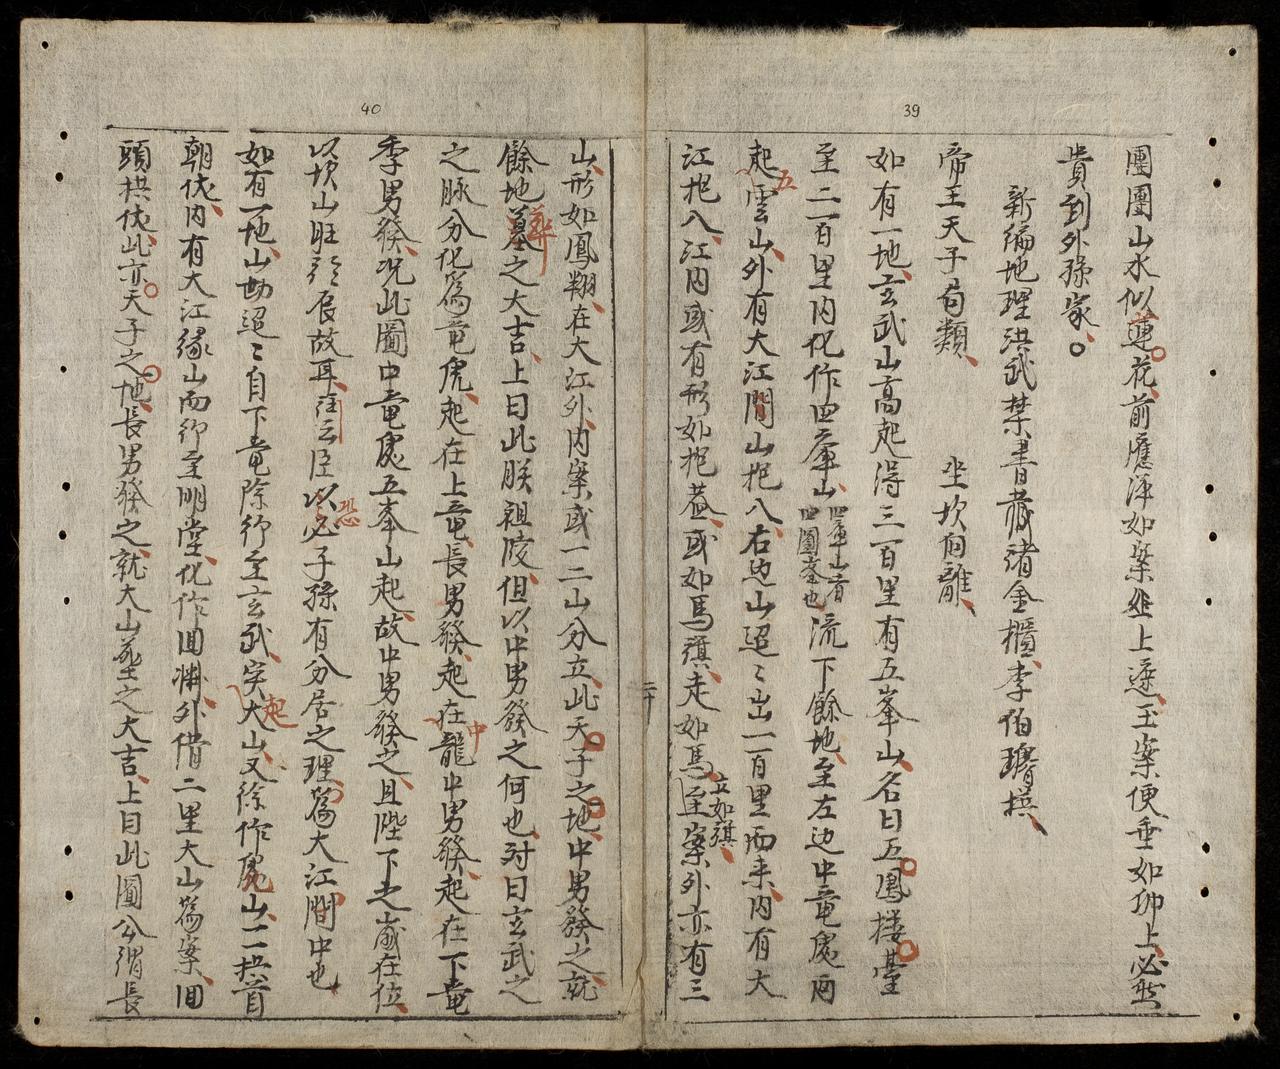 39
團團山水似蓮花前應渾如案畔上遶玉案便垂如卯上必然
貴到外孫家
新編地理洪武禁書藏諸金櫃李伯璿撰
帝王天子局類 坐坎向離
如有一地玄武山高起得三百里有五峯山名曰五鳳楼臺
至二百里内化作四峯山四峯山者四圍峯也流下餘地至左边中竜虎両
起五雲山外有大江間山抱入右边山迢々出一百里而来内有大
江抱入江内或有形如抱荅或如馬旗走如馬立如旗至案外亦有三
40
山形如鳳翔在大江外内案或一二山分立此天子之地中男發之就
餘地葬墓之大吉上曰此朕祖陵但以中男發之何也対曰玄武之
之脉分化爲竜虎起在上竜長男發起在中龍中男發起在下竜
季男發况此圖中竜虎五峯山起故中男發之且陛下之嵗在位
以坎山旺 辰故耳 云臣恐以必子孫有分居之理爲大江間中也
如有一地山 迢々自下竜除行至玄武突起大山又徐作虎山一拱首
朝伏内有大江緣山而行至明堂化作回 外借二里大山爲案回
頭拱伏此亦天子之地長男發之就大山葬之大吉上曰此圖公謂長